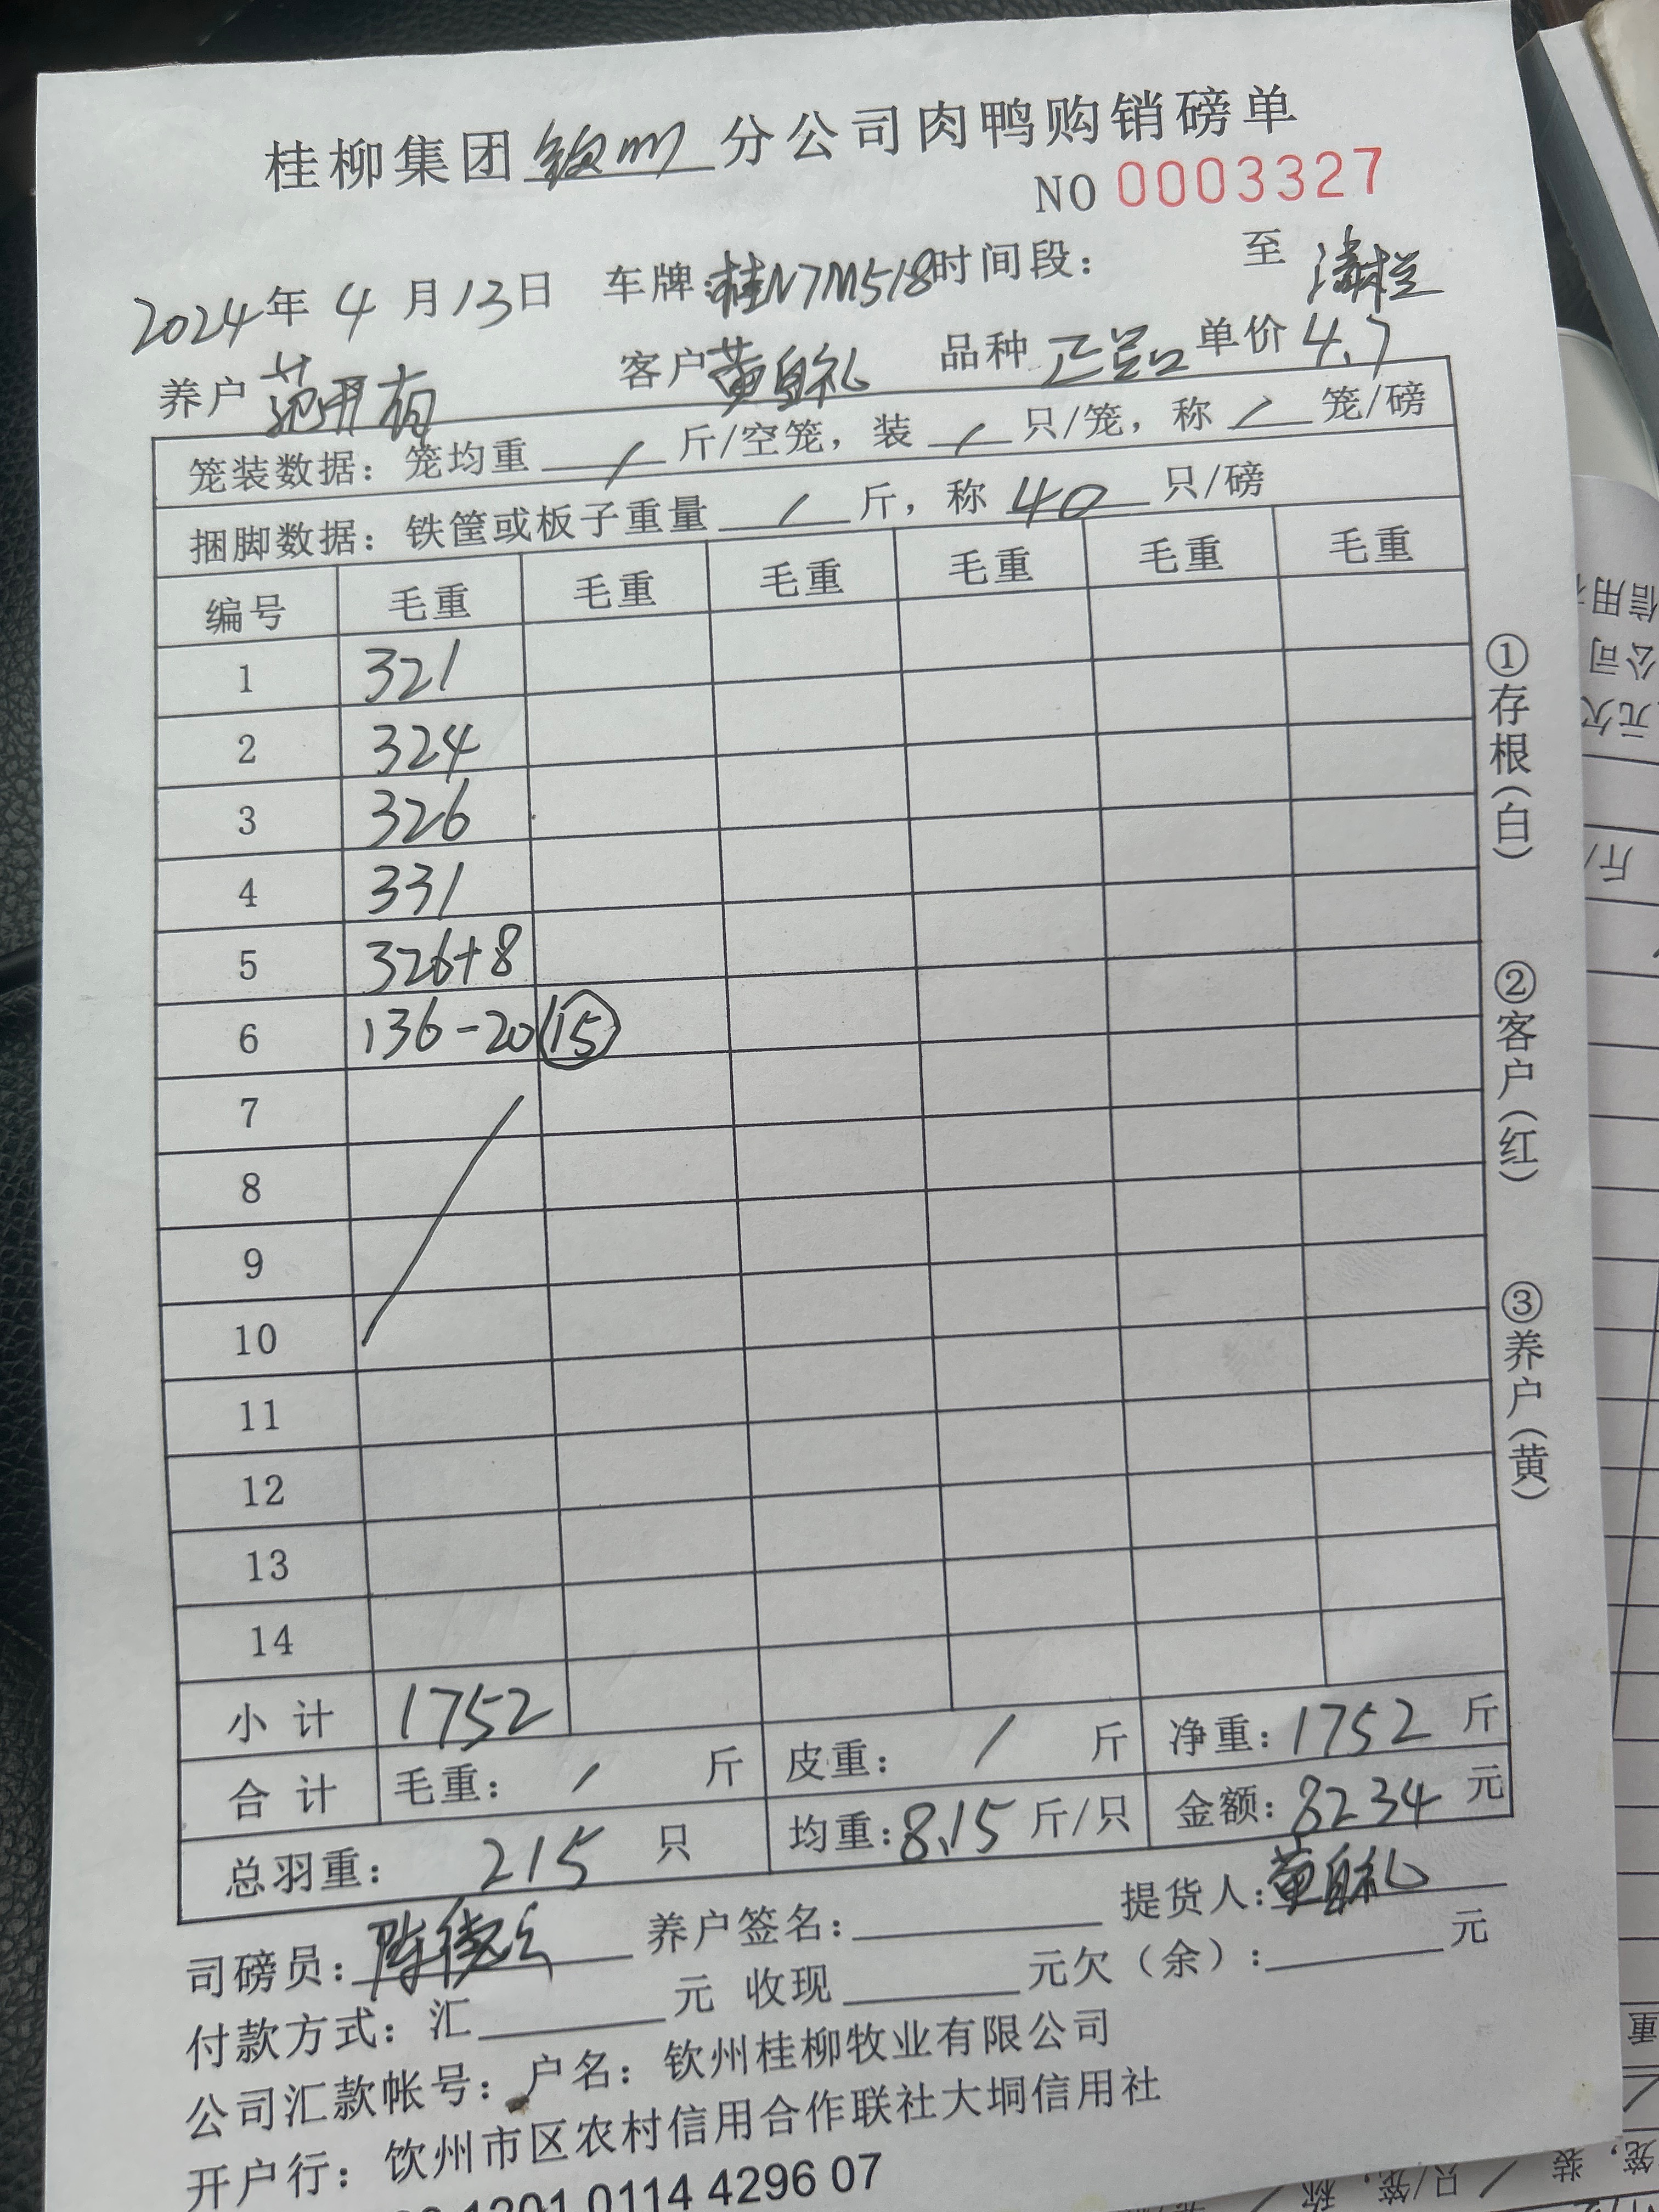 桂柳集团钦州分公司肉鸭购销磅单
NO 0003327
2024年4月13日 车牌:桂N7M518时间段: 至
养户 范开有 客户黄自礼 品种 正品 单价4.7
笼装数据: 笼均重 / 斤/空笼, 装 / 只/笼, 称 / 笼/磅
捆脚数据: 铁筐或板子重量 / 斤, 称 40 只/磅
编号 毛重 毛重 毛重 毛重 毛重 毛重
1 321
2 324
3 326
4 331
5 326+8
6 136-20 15
7
8
9
10
11
12
13
14
小计 1752
合计 毛重: / 斤 皮重: / 斤 净重:1752 斤
总羽重: 215 只 均重:8.15斤/只 金额:8234 元
司磅员: 养户签名: 提货人:黄自礼
付款方式: 汇 元 收现 元欠(余): 元
公司汇款帐号: 户名: 钦州桂柳牧业有限公司
开户行: 钦州市区农村信用合作联社大垌信用社
1201 0114 4296 07
①存根(白)
②客户(红)
③养户(黄)